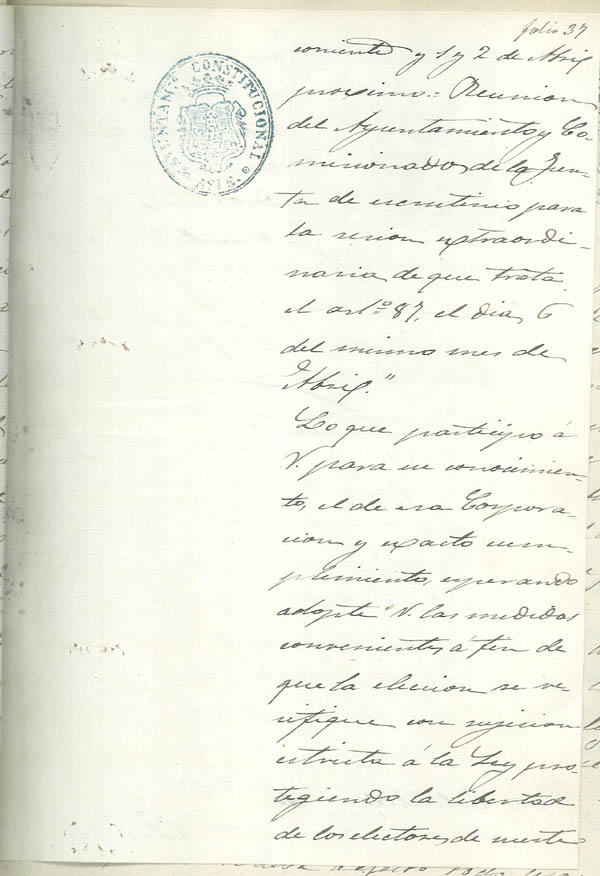 folio 37
AYUNTAM.TO CONSTITUCIONAL
corriente y 1 y 2 de Abril
proximo.= Reunion
del Ayuntamiento y Co-
misionados de la Jun-
ta de escrutinio para
la sesion extraordi-
naria de que trata
el artº 87, el dia 6
del mismo mes de
Abril."
Lo que participo á
V. para su conocimien-
to, el de esa Corpora-
cion y exacto cum-
plimiento, esperando
adopte V. las medidas
convenientes á fin de
que la eleccion se ve-
rifique con sujecion
estricta á la Ley pro-
tegiendo la libertad
de los electores, de suerte